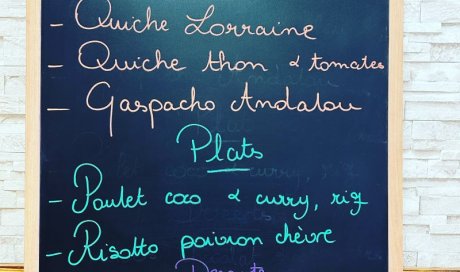 - Quiche Lorraine
- Quiche thon & tomates
- Gaspacho Andalou
Plats
- Poulet coco & curry, riz
- Risotto poivron chèvre
Desserts